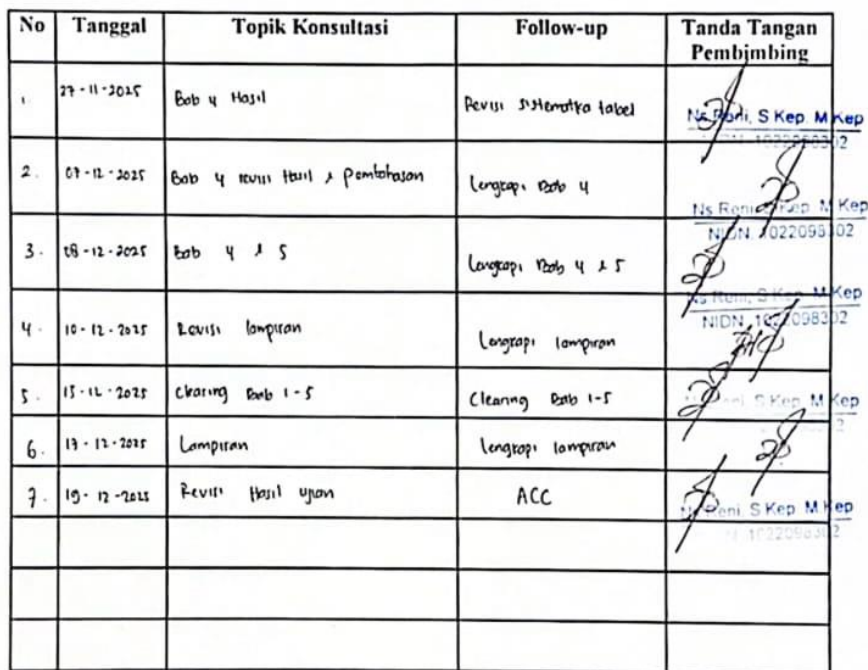 No Tanggal Topik Konsultasi Follow-up Tanda Tangan
Pembimbing
1. 27-11-2025 Bab 4 Hasil Revisi sistematika tabel
Ns Reni, S Kep. M Kep
2. 07-12-2025 Bab 4 revisi Hasil & Pembahasan Lengkapi Bab 4
Ns Reni, S Kep. M Kep
NIDN. 1022098302
3. 08-12-2025 Bab 4 & 5 Lengkapi Bab 4 & 5
Ns Reni, S Kep. M Kep
NIDN. 1022098302
4. 10-12-2025 Revisi lampiran Lengkapi lampiran
5. 15-12-2025 Clearing Bab 1-5 Clearing Bab 1-5
S Kep. M Kep
6. 17-12-2025 Lampiran Lengkapi lampiran
7. 19-12-2025 Revisi Hasil ujian ACC
Ns Reni, S Kep. M Kep